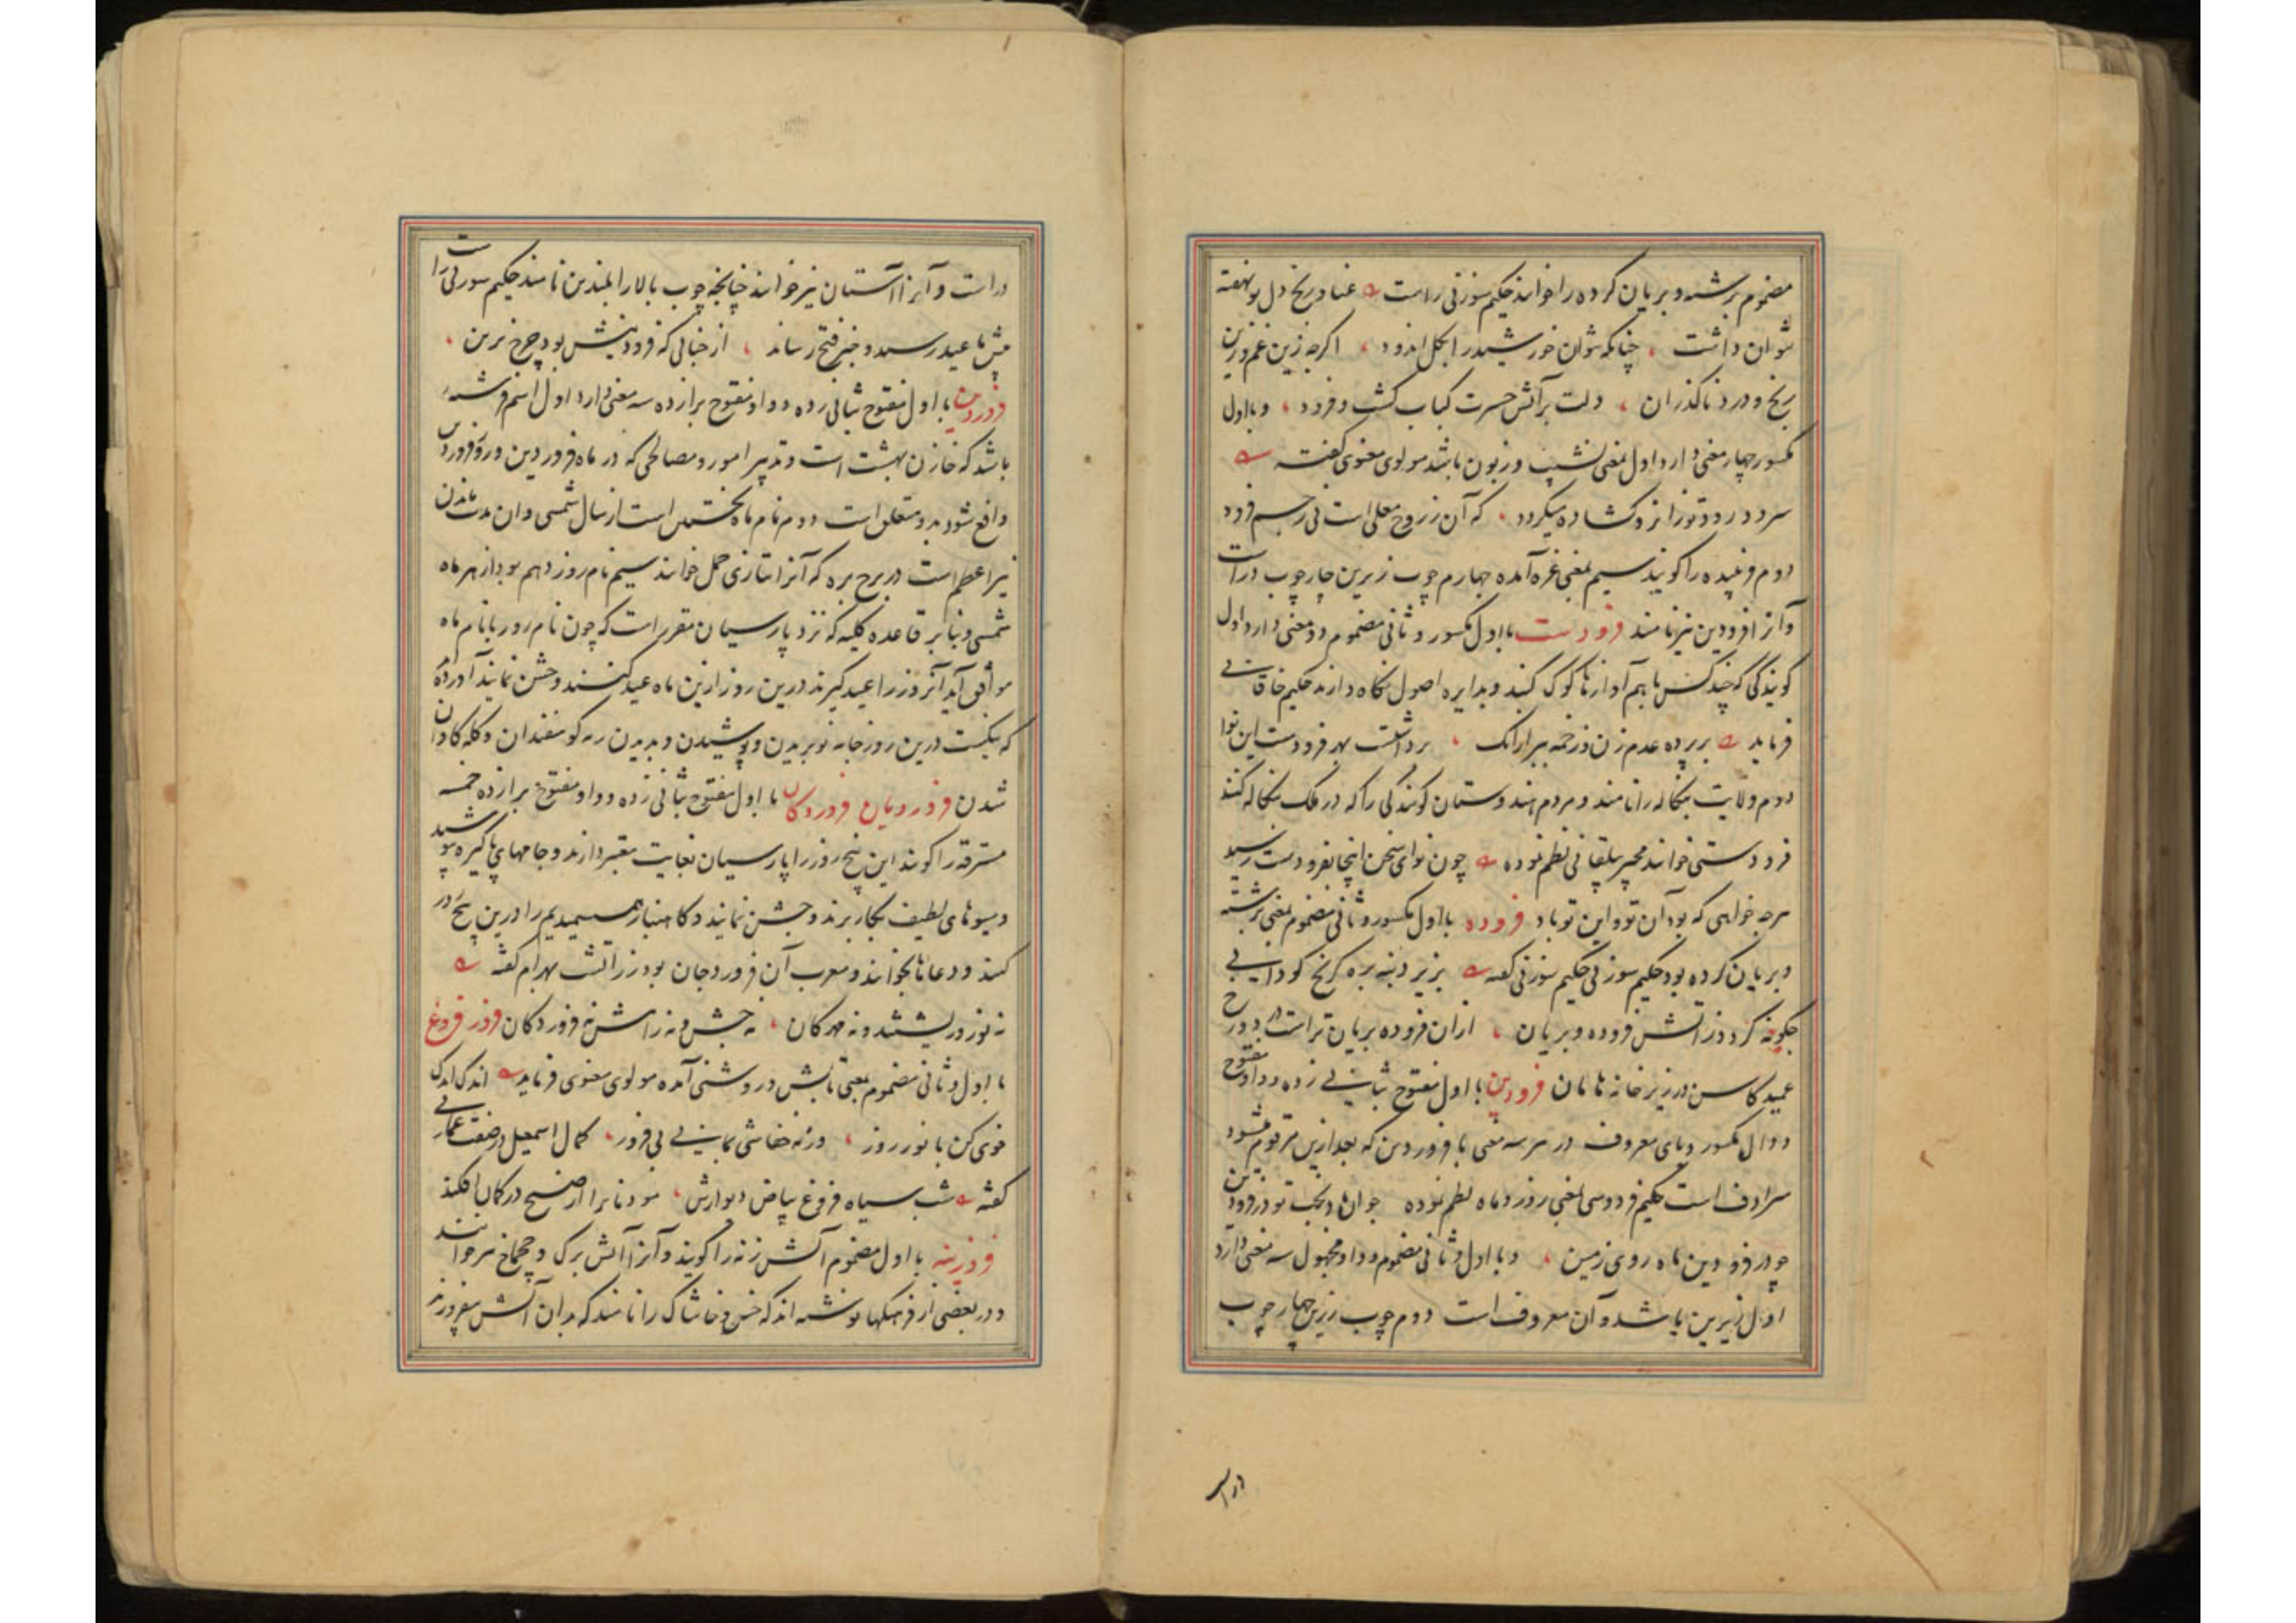 مضموم برشته و بریان کرده را خوانند حکیم سوزنی راست عنا و رنج دل تو نهفته
نتوان داشت چنانکه نتوان خورشید را بکل اندود اگرچه زین غم وزین
رنج و درد ناگذران دلت بر آتش حسرت کباب گشت و فرود و با اول
مکسور چهار معنی دارد اول بمعنی نشیب و زبون باشد مولوی معنوی گفته
سر دو رود تو زانرو گشاده میگردد که آن ز روح معلی است نی ز جسم فرود
دوم را گویند سیم بمعنی غره آمده چهارم چوب زیرین چارچوب در است
و آنرا فرودین نیز نامند فرودست با اول مکسور و ثانی مضموم دو معنی دارد اول
گویندگی که چند کس با هم آوازها کوک کنند و بدایره اصول نگاه دارند حکیم خاقانی
فرماید بر پرده عدم زن زخمه برداشت بهر فرودست این نوا
دوم ولایت بنگاله را نامند و مردم هندوستان گویندگی را که در ملک بنگاله کنند
فرودستی خوانند مجیر بیلقانی نظم نموده چون نوای سخن اینجا بفرودست رسید
هرچه خواهی که بود آن تو و این تو باد فروده با اول مکسور و ثانی مضموم بمعنی برشته
و بریان کرده بود حکیم سوزنی حکیم سوزنی گفته بزیر دنبه بره کرنج کودابی
چگونه گردد ز آتش فروده و بریان ازان فروده بریان تر است در دوزخ
عمید کاسن در زیر خانه هامان فرودین با اول مفتوح بثانی زده و واو مفتوح
و دال مکسور و یای معروف در هر سه معنی با فروردین که بعد ازین مرقوم شود
مرادف است حکیم فردوسی بمعنی روز و ماه نظم نموده جوان باد بخت تو در فرودین
چو در فرودین ماه روی زمین و با اول و ثانی مضموم و واو مجهول سه معنی دارد
اول زیرین باشد و آن معروف است دوم چوب زیرین چهار چوب
در است
در است و آنرا آستان نیز خوانند چنانچه چوب بالا را بلندین نامند حکیم سوزنی راست
پیش تا عید رسید و خبر فتح رساند از جنابی که فرودینش بود چرخ برین
فروردین با اول مفتوح بثانی زده و واو مفتوح برا زده سه معنی دارد اول اسم فرشته
باشد که خازن بهشت است و تدبیر امور و مصالحی که در ماه فروردین و روز فروردین
واقع شود بدو متعلق است دوم نام ماه نخستین است از سال شمسی و آن مدت ماندن
نیر اعظم است در برج بره که آنرا بتازی حمل خوانند سیم نام روز نوزدهم بود از هر ماه
شمسی و بنابر قاعده کلیه که نزد پارسیان مقرر است که چون نام روز با نام ماه
موافق آید آنروز را عید گیرند درین روز ازین ماه عید کنند و جشن نمایند آورده اند
که نیکست درین روز جامه نو بریدن و پوشیدن و بدیدن رمه گوسفندان و گله گاوان
شدن فروردیان فروردکان با اول مفتوح بثانی زده و واو مفتوح برا زده خمسه
مسترقه را گویند این پنج روز را پارسیان بغایت معتبر دارند و جامهای پاکیزه پوشید
و میوهای لطیف بکار برند و جشن نمایند و کاهنبار همسمیدیم را درین پنج روز
کنند و دعاها بخوانند و معرب آن فروردجان بود زراتشت بهرام گفته
نه نوروز پیششد و نه مهرکان نه جشن و نه رامش نه فروردکان فروز فروغ
با اول و ثانی مضموم بمعنی تابش و روشنی آمده مولوی معنوی فرماید اندک اندک
خوی کن با نور روز ورنه خفاشی بمانی بی فروز کمال اسمعیل در صفت عمارت
گفته شب سیاه فروغ بیاض دیوارش موذنانرا از صبح در گمان افکند
فروزینه با اول مضموم آتش زنه را گویند و آنرا آتش برگ و چخماخ نیز خوانند
و در بعضی از فرهنگها نوشته اند که خس و خاشاک را نامند که بدان آتش افروزند